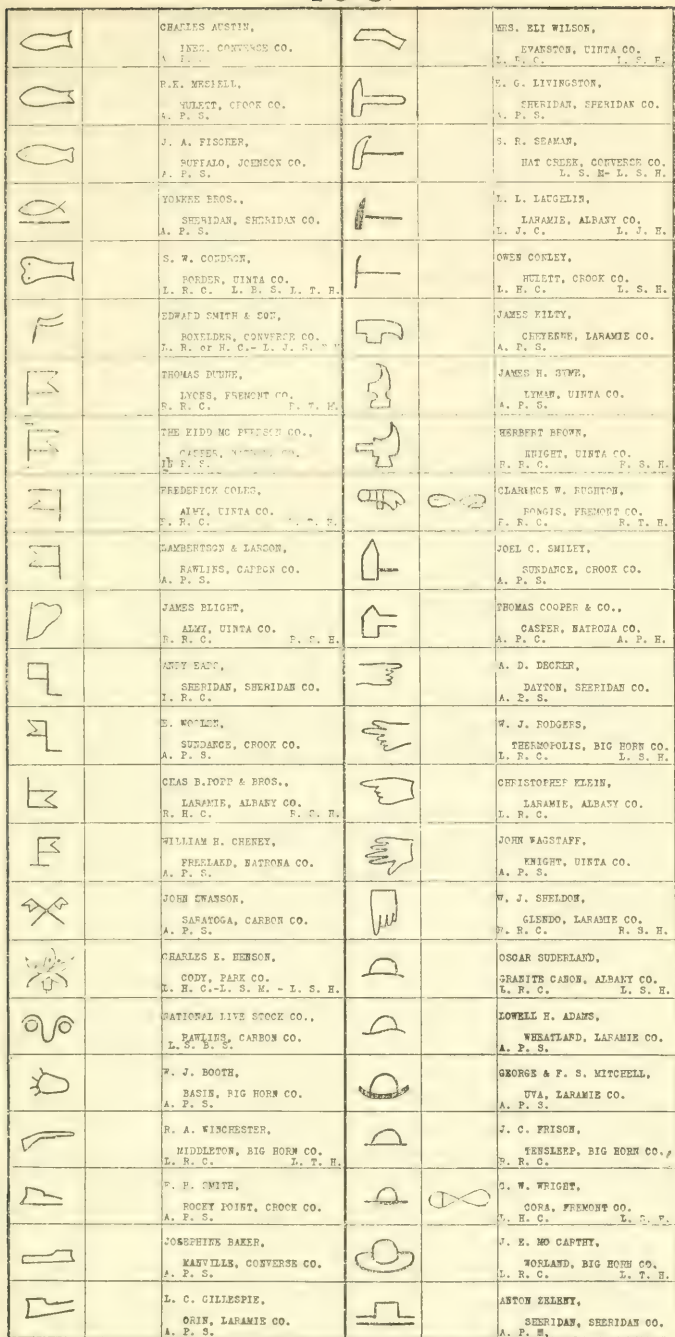 CHARLES AUSTIN,
CONVERSE CO.
HULETT, CROOK CO.
A. P. S.
J. A. FISCHER,
BUFFALO, JOHNSON CO.
A. P. S.
YONKEE BROS.,
SHERIDAN, SHERIDAN CO.
A. P. S.
S. W.
BORDER, UINTA CO.
L. R. C. L. B. S. L. T. H.
EDWARD SMITH & SON,
BOXELDER, CONVERSE CO.
L. R. or H. C.- L. J. S.
THOMAS DUNNE,
LYONS, FREMONT CO.
R. R. C.
THE KIDD MC
CASPER,
P. S.
FREDERICK COLES,
ALMY, UINTA CO.
R. C.
LAMBERTSON & LARSON,
RAWLINS, CARBON CO.
A. P. S.
JAMES BLIGHT,
ALMY, UINTA CO.
R. R. C. R. S. H.
ANDY
SHERIDAN, SHERIDAN CO.
R. C.
E.
SUNDANCE, CROOK CO.
A. P. S.
CHAS B.POPP & BROS.,
LARAMIE, ALBANY CO.
R. H. C. R. S. H.
WILLIAM H. CHENEY,
FREELAND, NATRONA CO.
A. P. S.
JOHN SWANSON,
SARATOGA, CARBON CO.
A. P. S.
CHARLES E. HENSON,
CODY, PARK CO.
L. H. C.-L. S. M. - L. S. H.
NATIONAL LIVE STOCK CO.,
RAWLINS, CARBON CO.
L. S. B. S.
W. J. BOOTH,
BASIN, BIG HORN CO.
A. P. S.
R. A. WINCHESTER,
MIDDLETON, BIG HORN CO.
L. R. C. L. T. H.
SMITH,
ROCKY POINT, CROOK CO.
A. P. S.
JOSEPHINE BAKER,
MANVILLE, CONVERSE CO.
A. P. S.
L. C. GILLESPIE,
ORIN, LARAMIE CO.
A. P. S.
MRS. ELI WILSON,
EVANSTON, UINTA CO.
L. R. C. L. S. H.
E. G. LIVINGSTON,
SHERIDAN, SHERIDAN CO.
A. P. S.
S. R. SEAMAN,
HAT CREEK, CONVERSE CO.
L. S. M- L. S. H.
L. L. LAUGHLIN,
LARAMIE, ALBANY CO.
L. J. C. L. J. H.
OWEN CONLEY,
HULETT, CROOK CO.
L. H. C. L. S. H.
JAMES KILTY,
CHEYENNE, LARAMIE CO.
A. P. S.
JAMES H. SYME,
LYMAN, UINTA CO.
A. P. S.
HERBERT BROWN,
KNIGHT, UINTA CO.
R. R. C. R. S. H.
CLARENCE W.
RONGIS, FREMONT CO.
R. C. R. T. H.
JOEL C. SMILEY,
SUNDANCE, CROOK CO.
A. P. S.
THOMAS COOPER & CO.,
CASPER, NATRONA CO.
A. P. C. A. P. H.
A. D. DECKER,
DAYTON, SHERIDAN CO.
A. P. S.
W. J. RODGERS,
THERMOPOLIS, BIG HORN CO.
L. R. C. L. S. H.
CHRISTOPHER KLEIN,
LARAMIE, ALBANY CO.
L. R. C.
JOHN WAGSTAFF,
KNIGHT, UINTA CO.
A. P. S.
W. J. SHELDON,
GLENDO, LARAMIE CO.
R. R. C. R. S. H.
OSCAR SUDERLAND,
GRANITE CANON, ALBANY CO.
L. R. C. L. S. H.
LOWELL H. ADAMS,
WHEATLAND, LARAMIE CO.
A. P. S.
GEORGE & F. S. MITCHELL,
UVA, LARAMIE CO.
A. P. S.
J. C. FRISON,
TENSLEEP, BIG HORN CO.
R. R. C.
W. WRIGHT,
CORA, FREMONT CO.
L. H. C.
J. E. MC CARTHY,
WORLAND, BIG HORN CO.
L. R. C. L. T. H.
ANTON ZELENY,
SHERIDAN, SHERIDAN CO.
A. P. H.